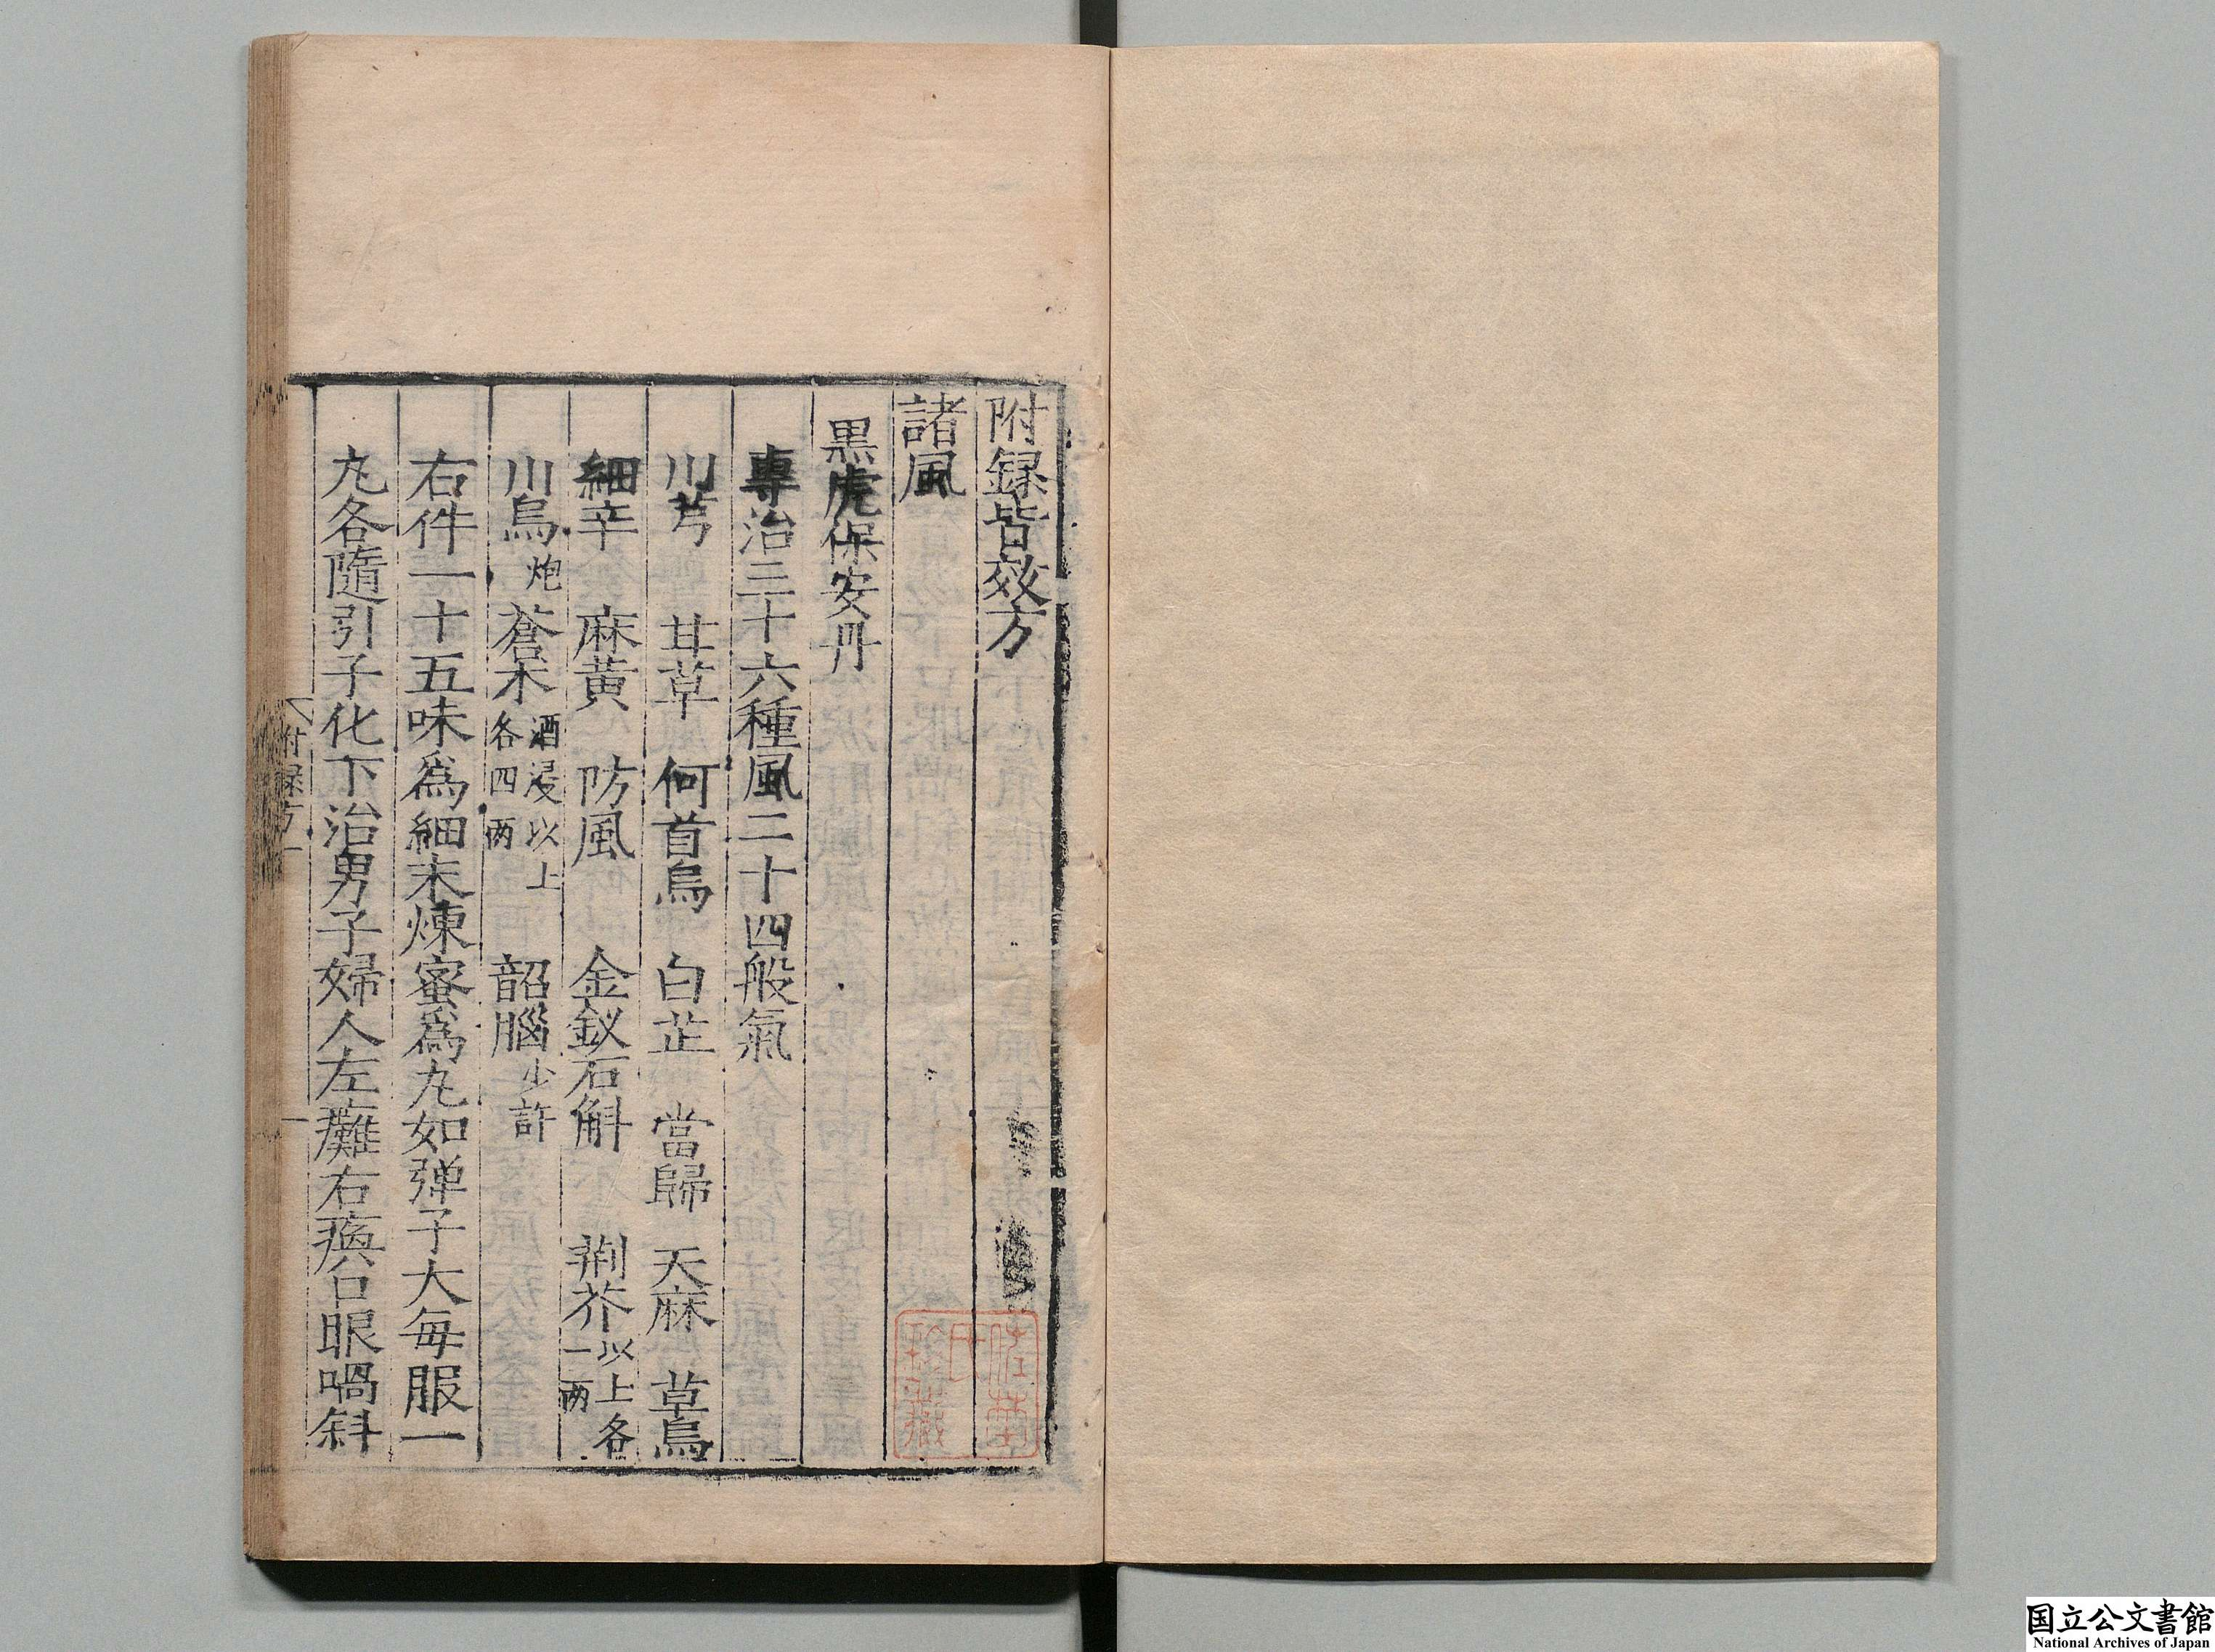 附録皆效方
諸風
黒虎保安丹
專治三十六種風二十四般氣
川芎 甘草 何首烏 白芷 當歸 天麻 草烏
細辛 麻黃 防風 金釵石斛 荆芥以上各一兩
川烏炮 蒼朮酒浸以上各四兩 韶腦少許
右件一十五味爲細末煉蜜爲丸如弹子大每服一
丸各隨引子化下治男子婦人左癱右瘓口眼喎斜
附録方一
一
国立公文書館
National Archives of Japan